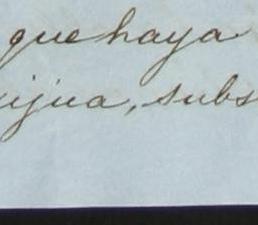 que haya
ijua, subs